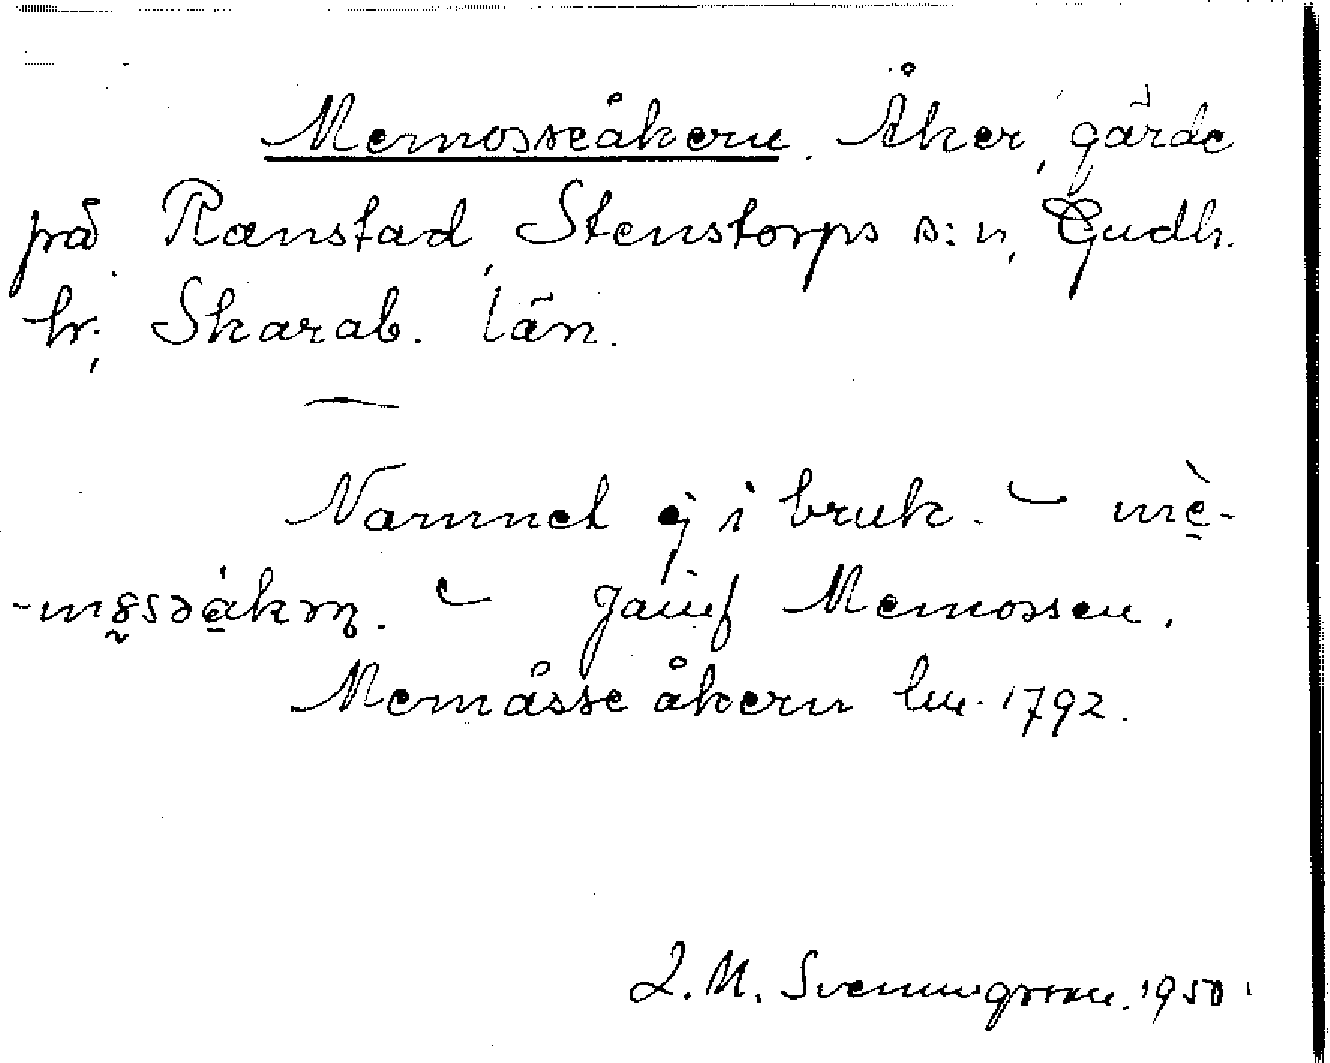 Memosseåkern. Åker, gärde
på Ranstad, Stenstorps s:n, Gudh.
hr, Skarab. län.
Namnet ej i bruk. – mè-
-mɷsəåkən. – Jämf Memossen.
Memåsse åkern lm. 1792.
L. M. Svenungsson. 1950.